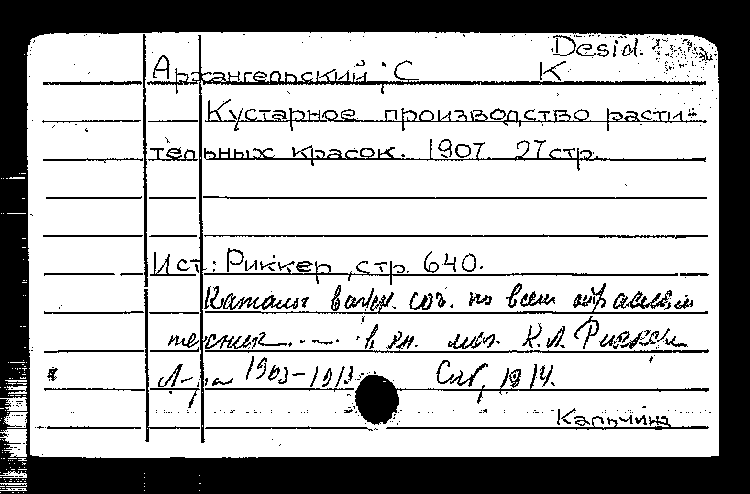 Desid.
Архангельский, С К
Кустарное производство расти-
тельных красок. 1907. 27 стр.
Ист.: Риккер, стр. 640.
Каталог важн. соч. по всем отраслям
техник..... в кн. маг. К.Л. Риккер
Л-ра 1903-1913 Спб, 1914.
Кальчина